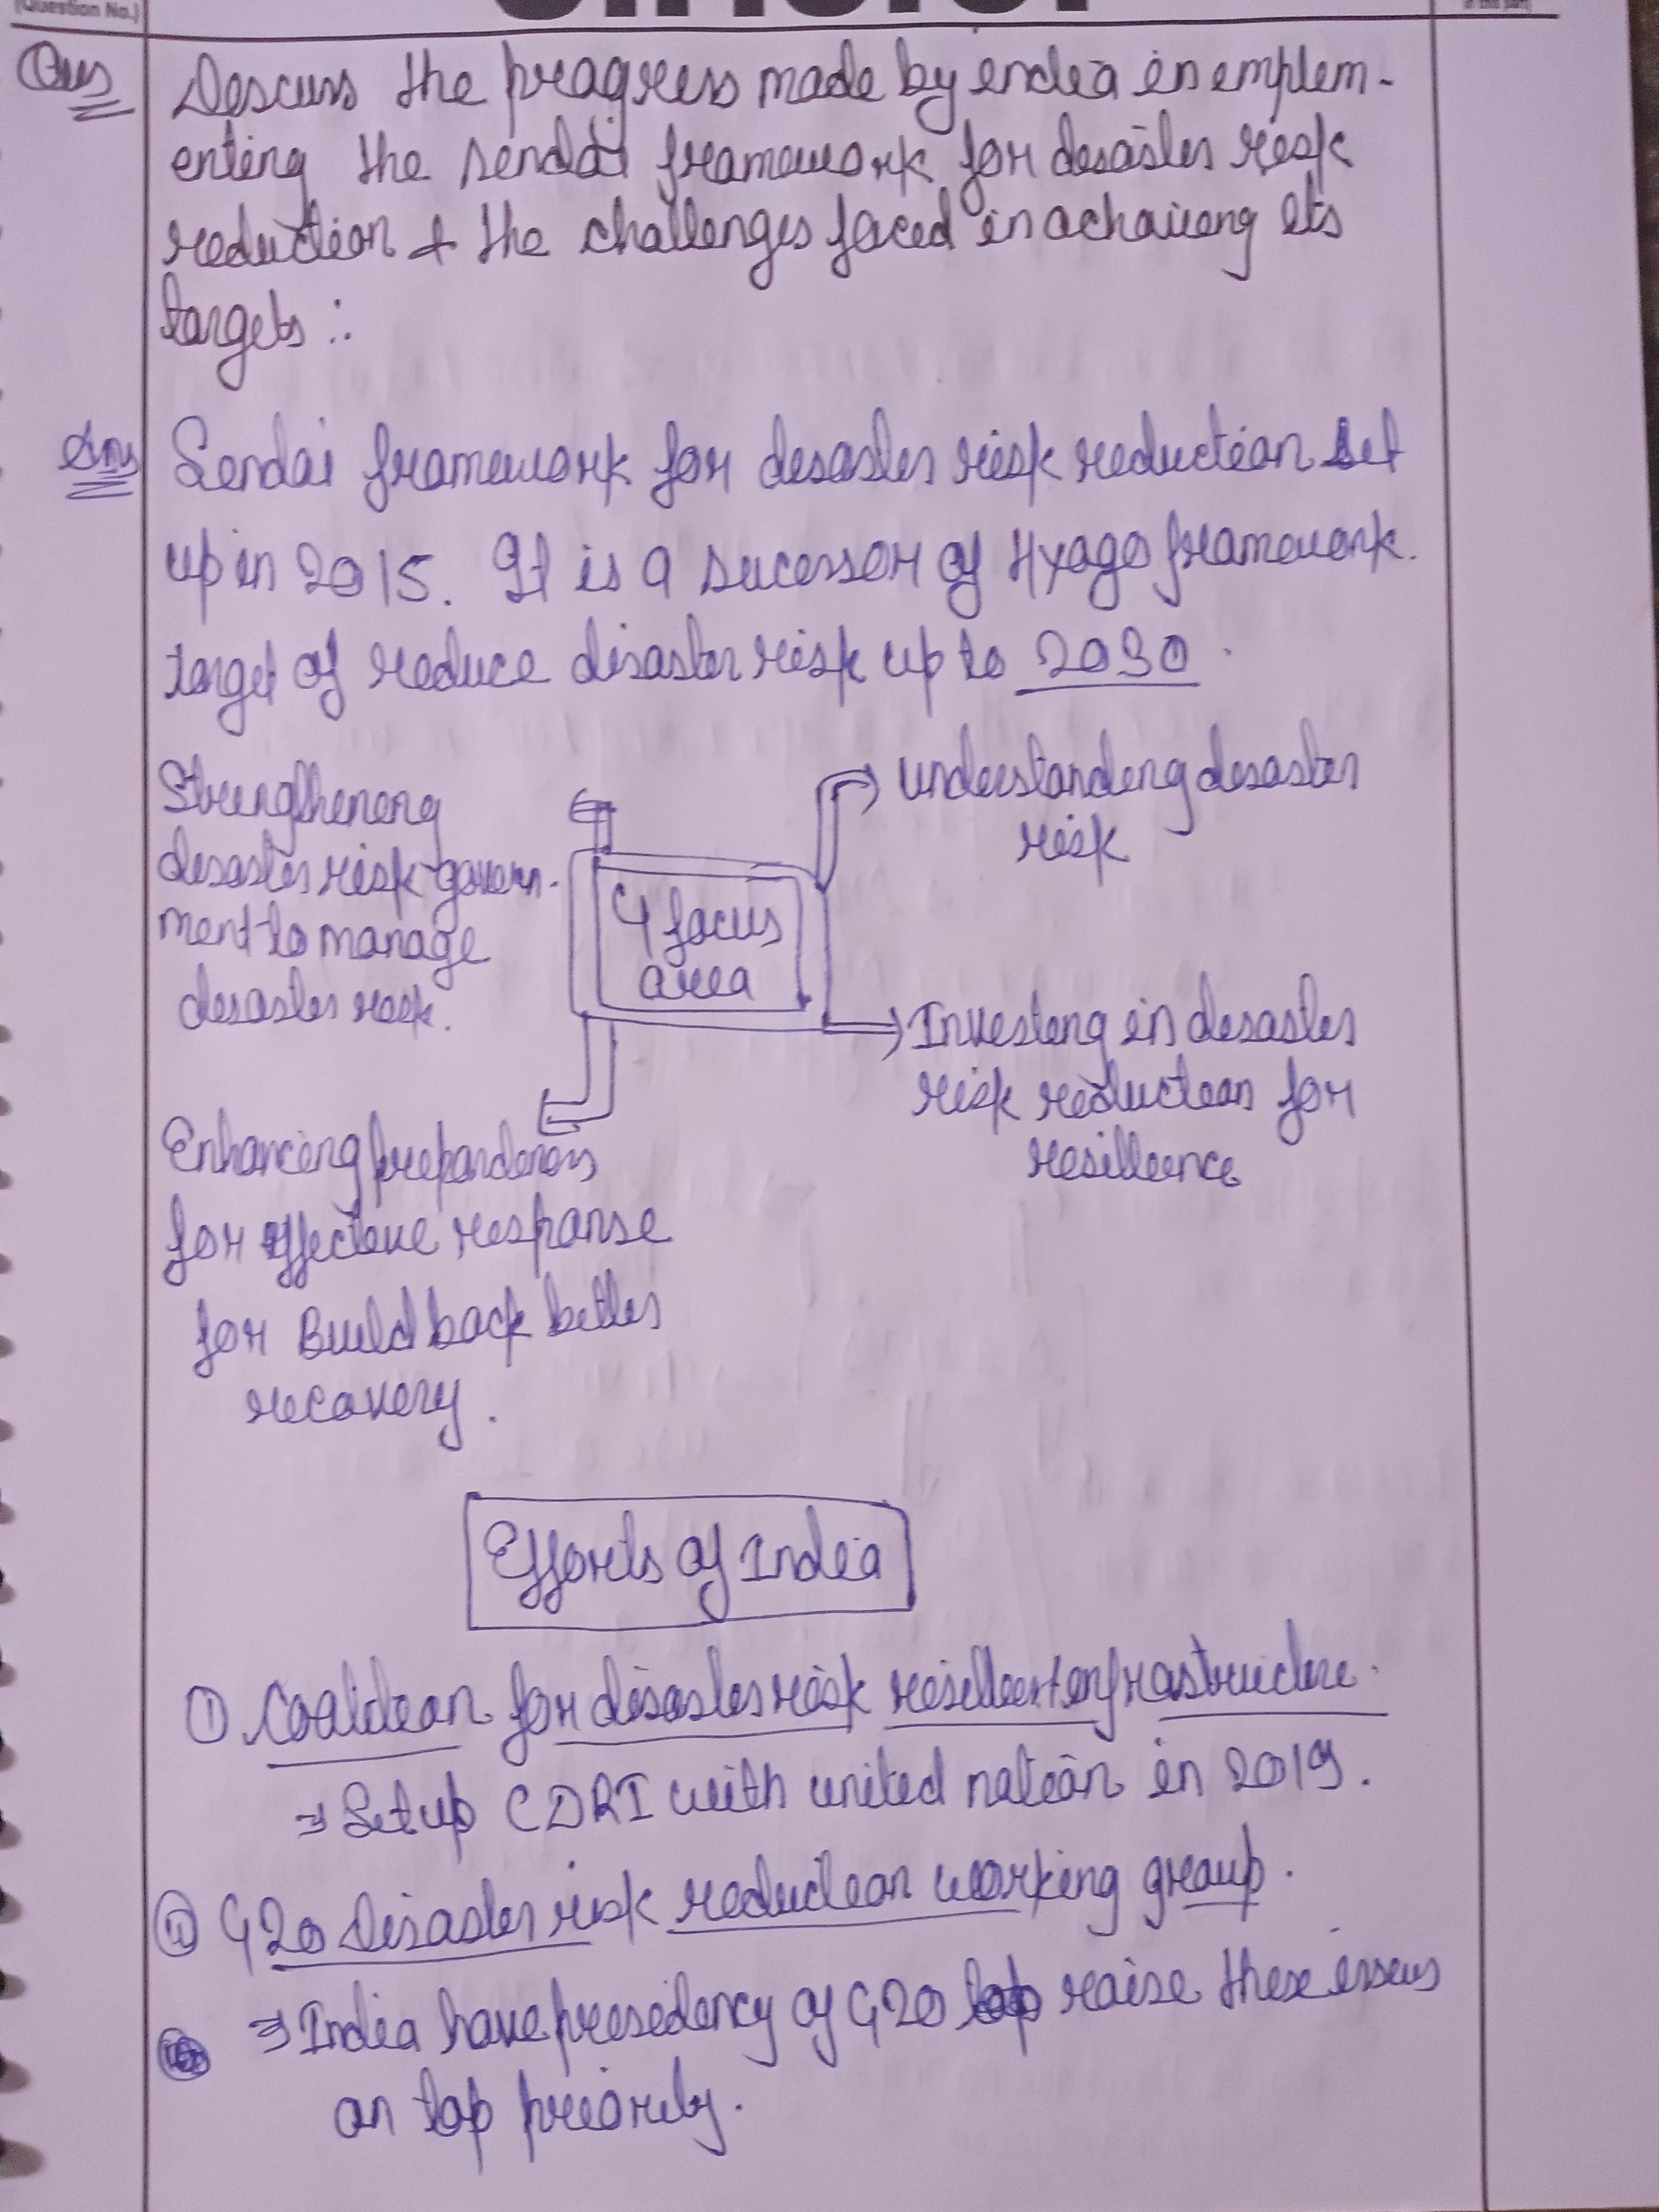 (Question No.)
Ques Discuss the progress made by india in implem-
enting the sendai framework for disaster risk
reduction & the challenges faced in achaiieng its
targets :.
Ans Sendai framework for disaster risk reduction set
up in 2015. It is a sucessor of Hyago framework.
target of reduce disaster risk up to 2030.
Strengthening
disaster risk govern-
ment to manage
disaster risk.
4 focus
area
understanding disaster
risk
Investing in disaster
risk reduction for
resillience
Enhancing prepardness
for effective response
for Build back better
recovery.
Efforts of India
① Coalition for disaster risk resillient infrastructure.
⇒ Setup CDRI with united nation in 2019.
② G20 disaster risk reduction working group.
⇒ India have presidency of G20 raise these issues
on top priority.